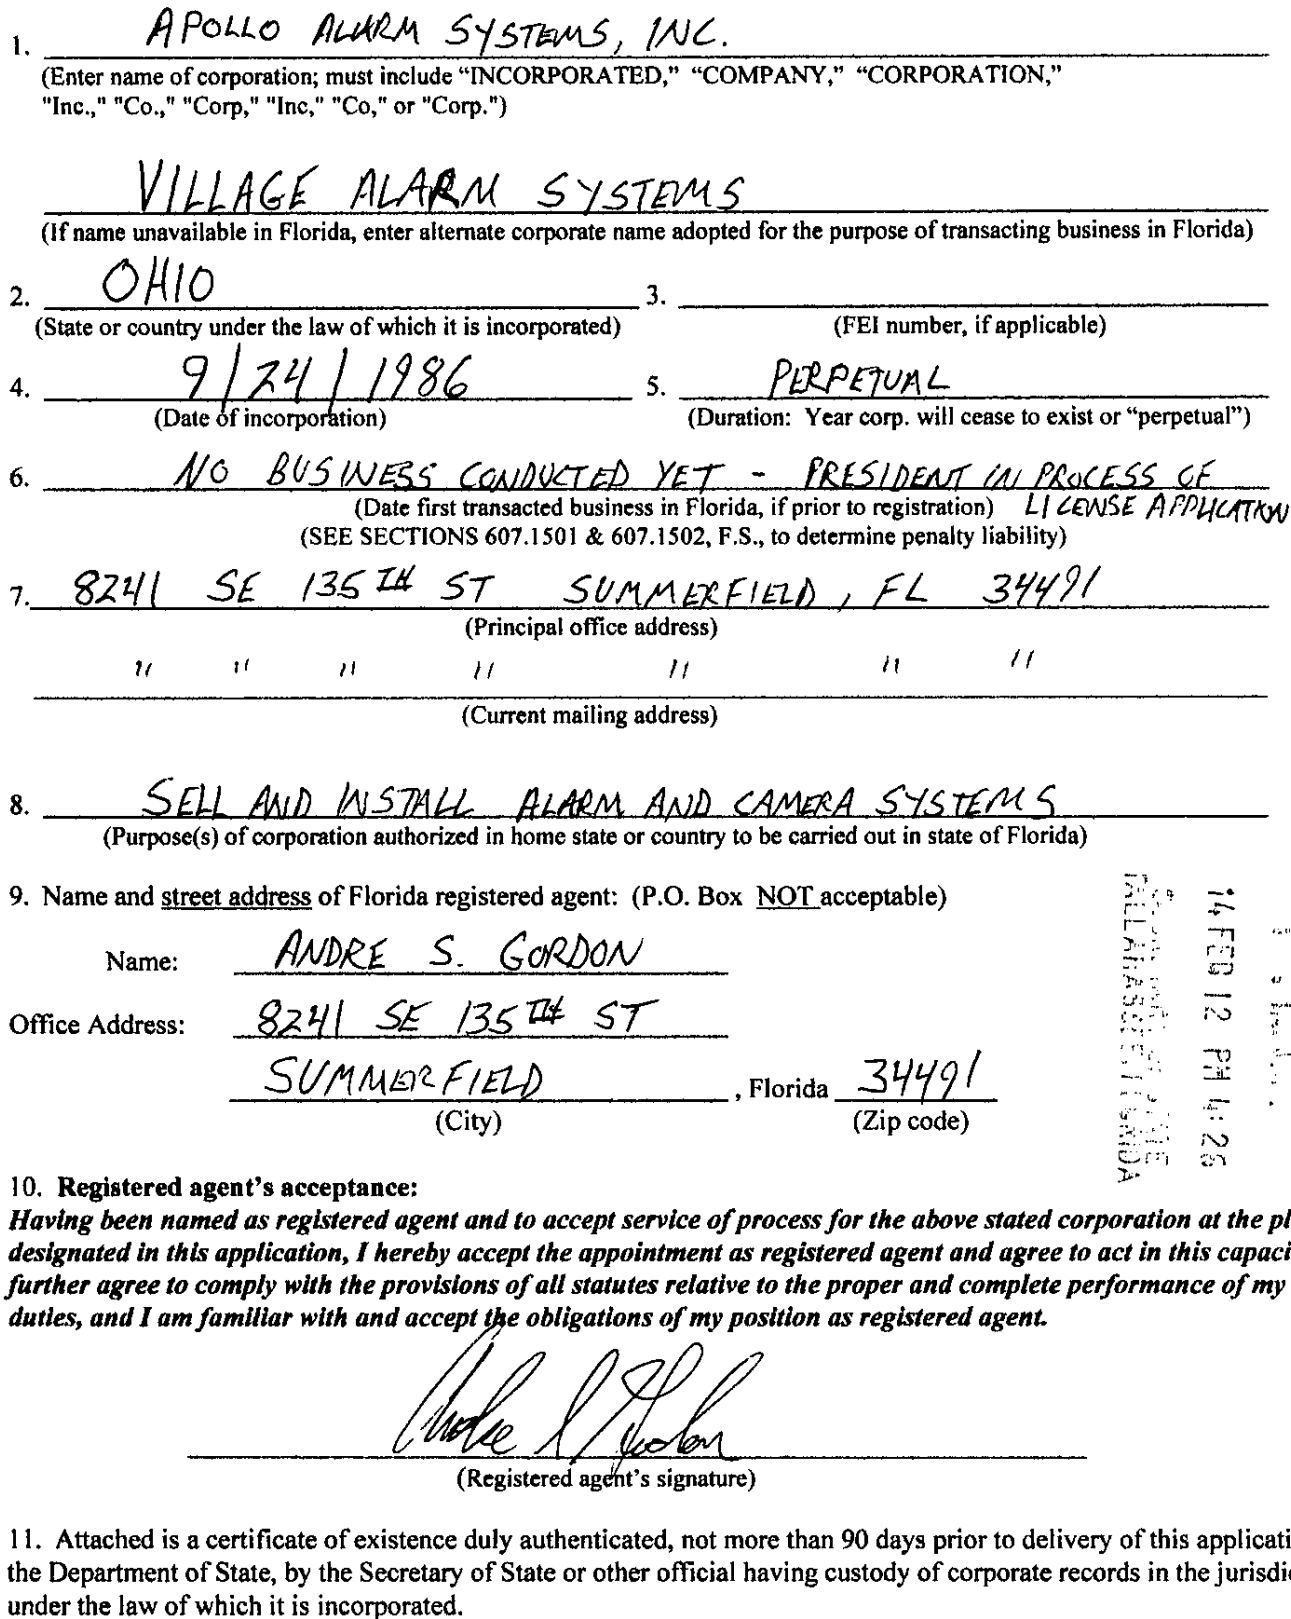 1. APOLLO ALARM SYSTEMS, INC.
(Enter name of corporation; must include “INCORPORATED,” “COMPANY,” “CORPORATION,”
"Inc.," "Co.," "Corp," "Inc," "Co," or "Corp.")
VILLAGE ALARM SYSTEMS
(If name unavailable in Florida, enter alternate corporate name adopted for the purpose of transacting business in Florida)
2. OHIO 3.
(State or country under the law of which it is incorporated) (FEI number, if applicable)
4. 9/24/1986 5. PERPETUAL
(Date of incorporation) (Duration: Year corp. will cease to exist or “perpetual”)
6. NO BUSINESS CONDUCTED YET - PRESIDENT IN PROCESS OF
(Date first transacted business in Florida, if prior to registration) LICENSE APPLICATION
(SEE SECTIONS 607.1501 & 607.1502, F.S., to determine penalty liability)
7. 8241 SE 135TH ST SUMMERFIELD, FL 34491
(Principal office address)
" " " " " " "
(Current mailing address)
8. SELL AND INSTALL ALARM AND CAMERA SYSTEMS
(Purpose(s) of corporation authorized in home state or country to be carried out in state of Florida)
9. Name and street address of Florida registered agent: (P.O. Box NOT acceptable)
Name: ANDRE S. GORDON
Office Address: 8241 SE 135TH ST
SUMMERFIELD, Florida 34491
(City) (Zip code)
14 FEB 12 PM 4:26
TALLAHASSEE FLORIDA
10. Registered agent's acceptance:
Having been named as registered agent and to accept service of process for the above stated corporation at the pl
designated in this application, I hereby accept the appointment as registered agent and agree to act in this capaci
further agree to comply with the provisions of all statutes relative to the proper and complete performance of my
duties, and I am familiar with and accept the obligations of my position as registered agent.
Andre S Gordon
(Registered agent's signature)
11. Attached is a certificate of existence duly authenticated, not more than 90 days prior to delivery of this applicati
the Department of State, by the Secretary of State or other official having custody of corporate records in the jurisdi
under the law of which it is incorporated.